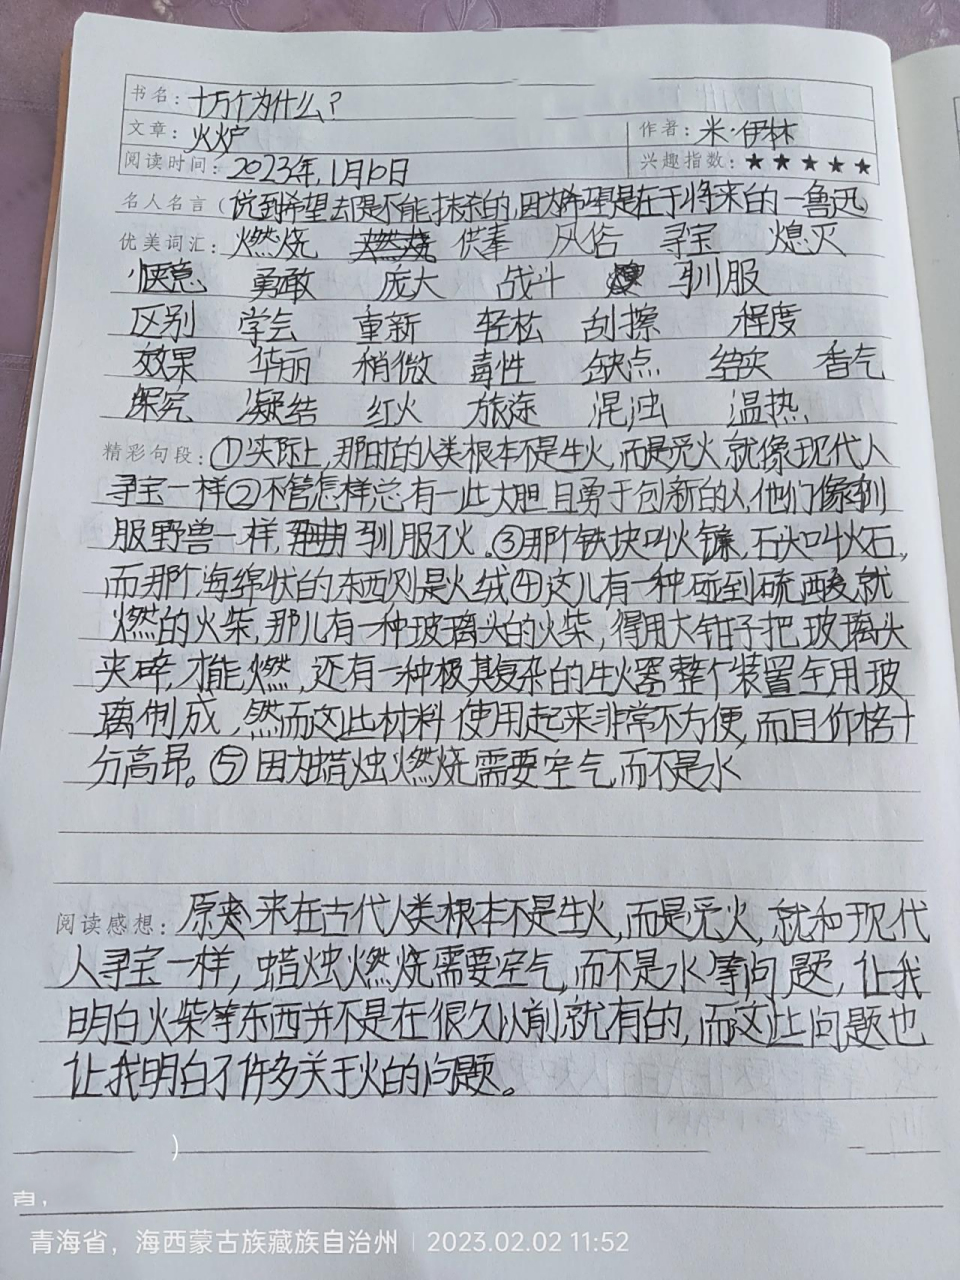 书名：十万个为什么？
文章：火炉 作者：米·伊林
阅读时间：2023年1月10日 兴趣指数：★★★★★
名人名言（说到希望却是不能抹杀的，因为希望是在于将来的—鲁迅）
优美词汇：燃烧 供奉 风俗 寻宝 熄灭
惬意 勇敢 庞大 战斗 驯服
区别 学会 重新 轻松 刮擦 程度
效果 华丽 稍微 毒性 缺点 结实 香气
探究 凝结 红火 旅途 混浊 温热
精彩句段：①实际上，那时的人类根本不是生火，而是觅火，就像现代人
寻宝一样②不管怎样，总有一些大胆且勇于创新的人，他们像驯
服野兽一样，驯服了火。③那个铁块叫火镰，石头叫火石，
而那个海绵状的东西则是火绒④这儿有一种碰到硫酸就
燃的火柴，那儿有一种玻璃头的火柴，得用大钳子把玻璃头
夹碎，才能燃，还有一种极其复杂的生火器，整个装置全用玻
璃制成，然而这些材料使用起来非常不方便，而且价格十
分高昂。⑤因为蜡烛燃烧需要空气，而不是水
阅读感想：原来在古代人类根本不是生火，而是觅火，就和现代
人寻宝一样，蜡烛燃烧需要空气，而不是水等问题，让我
明白火柴等东西并不是在很久以前就有的，而这些问题也
让我明白了许多关于火的问题。
青海省，海西蒙古族藏族自治州 | 2023.02.02 11:52